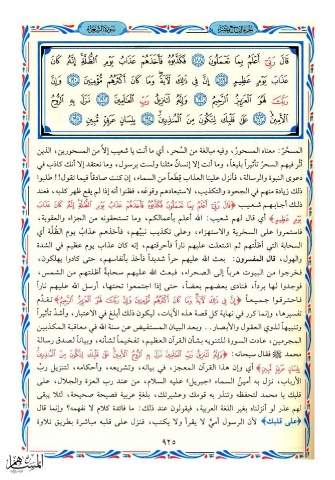 قَالَ رَبِّي أَعْلَمُ بِمَا تَعْمَلُونَ ۝ فَكَذَّبُوهُ فَأَخَذَهُمْ عَذَابُ يَوْمِ الظُّلَّةِ إِنَّهُ كَانَ
عَذَابَ يَوْمٍ عَظِيمٍ ۝ إِنَّ فِي ذَلِكَ لَآيَةً وَمَا كَانَ أَكْثَرُهُم مُّؤْمِنِينَ ۝ وَإِنَّ
رَبَّكَ لَهُوَ الْعَزِيزُ الرَّحِيمُ ۝ وَإِنَّهُ لَتَنزِيلُ رَبِّ الْعَالَمِينَ ۝ نَزَلَ بِهِ الرُّوحُ
الْأَمِينُ ۝ عَلَى قَلْبِكَ لِتَكُونَ مِنَ الْمُنذِرِينَ ۝ بِلِسَانٍ عَرَبِيٍّ مُّبِينٍ ۝
المسحَّر: معناه المسحور، وفيه مبالغة من السحر، أي ما أنت يا شعيب إلا من المسحورين، الذين
أثَّر فيهم السحرُ تأثيراً بليغاً، وما أنت إلا إنسانٌ مثلنا ولست برسول، وما نعتقد إلا أنك كاذب في
دعوى النبوة والرسالة، فأنزل علينا العذاب قِطَعاً من السماء، إن كنت صادقاً فيما تقول!! طلبوا
ذلك زيادة منهم في الجحود والتكذيب، لاستبعادهم وقوعه، فظنوا أنه إذا لم يقع ظهر كذبه، فعند
ذلك أجابهم شعيب ﴿قَالَ رَبِّي أَعْلَمُ بِمَا تَعْمَلُونَ فَكَذَّبُوهُ فَأَخَذَهُمْ عَذَابُ يَوْمِ الظُّلَّةِ إِنَّهُ كَانَ عَذَابَ
يَوْمٍ عَظِيمٍ﴾ أي قال لهم شعيب: الله أعلم بأعمالكم، وما تستحقونه من الجزاء والعقوبة،
فاستمروا على السخرية والاستهزاء، وعلى تكذيب نبيِّهم، فأخذهم عذابُ يوم الظُّلة أي
السحابة التي أظلَّتهم ثم اشتعلت عليهم ناراً فأحرقتهم، إنه كان عذاب يوم عظيم في الشدة
والهول، قال المفسرون: بعث الله عليهم حراً شديداً فأخذ بأنفاسهم، حتى كادوا يهلكون،
فخرجوا من البيوت هرباً إلى الصحراء، فبعث الله عليهم سحابةً أظلتهم من الشمس،
فوجدوا لها برداً، فنادى بعضهم بعضاً، حتى إذا اجتمعوا تحتها، أرسل الله عليهم ناراً
فاحترقوا جميعاً ﴿إِنَّ فِي ذَلِكَ لَآيَةً وَمَا كَانَ أَكْثَرُهُم مُّؤْمِنِينَ وَإِنَّ رَبَّكَ لَهُوَ الْعَزِيزُ الرَّحِيمُ﴾ تقدَّم
تفسيرها، وإنما كرر في نهاية كل قصة هذه الآيات، ليكون ذلك أبلغ في الاعتبار، وأشدَّ تأثيراً
وتنبيهاً لذوي العقول والأبصار . . وبعد البيان المستفيض عن سنة الله في معاقبة المكذبين
المجرمين، عادت السورة للتنويه بشأن القرآن العظيم، تفخيماً لشأنه، وبياناً لصدق رسالة
محمد ﷺ فقال سبحانه: ﴿وَإِنَّهُ لَتَنزِيلُ رَبِّ الْعَالَمِينَ نَزَلَ بِهِ الرُّوحُ الْأَمِينُ عَلَى قَلْبِكَ لِتَكُونَ مِنَ الْمُنذِرِينَ
بِلِسَانٍ عَرَبِيٍّ مُّبِينٍ﴾ أي وإن هذا القرآن المعجز، في بيانه، وتشريعه، وأحكامه، لتنزيل ربِّ
الأرباب، نزل به أمينُ السماء «جبريل» عليه السلام، من عند رب العزة والجلال، على
قلبك يا محمد لتحفظه وتنذر به قومك وعشيرتك، بلغةٍ عربية فصيحة صحيحة، لئلا يبقى
لهم عذر لو أنزلناه بغير اللغة العربية، فيقولون عند ذلك: ما فائدة كلام لا نفهمه؟ وإنما قال
﴿على قلبك﴾ لأن الرسول أميٌّ لا يقرأ ولا يكتب، فنزل على قلبه مباشرة بطريق تلاوة
٩٢٥